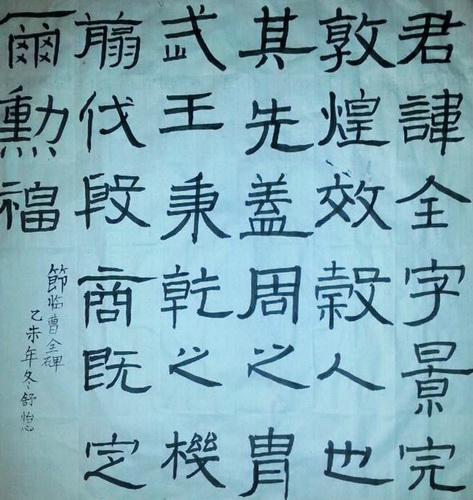 君諱全字景完
敦煌效穀人也
其先蓋周之胄
武王秉乾之機
翦伐殷商既定
爾勳福
節临曹全碑
乙未年冬舒怡